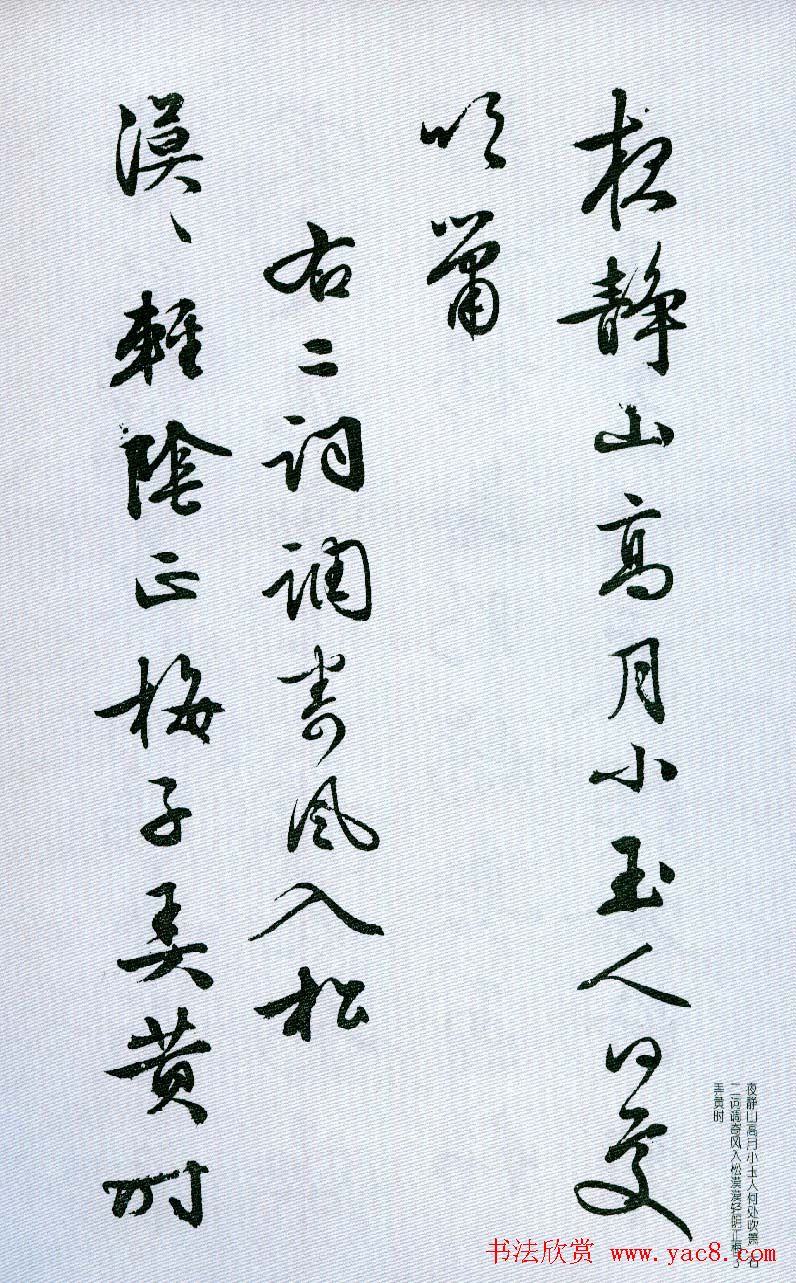 夜静山高月小玉人何處
吹簫
右二词调寄风入松
漠、輕陰正梅子弄黄时
夜静山高月小玉人何处吹箫 右
二词调寄风入松漠漠轻阴正梅子
弄黄时
书法欣赏 www.yac8.com